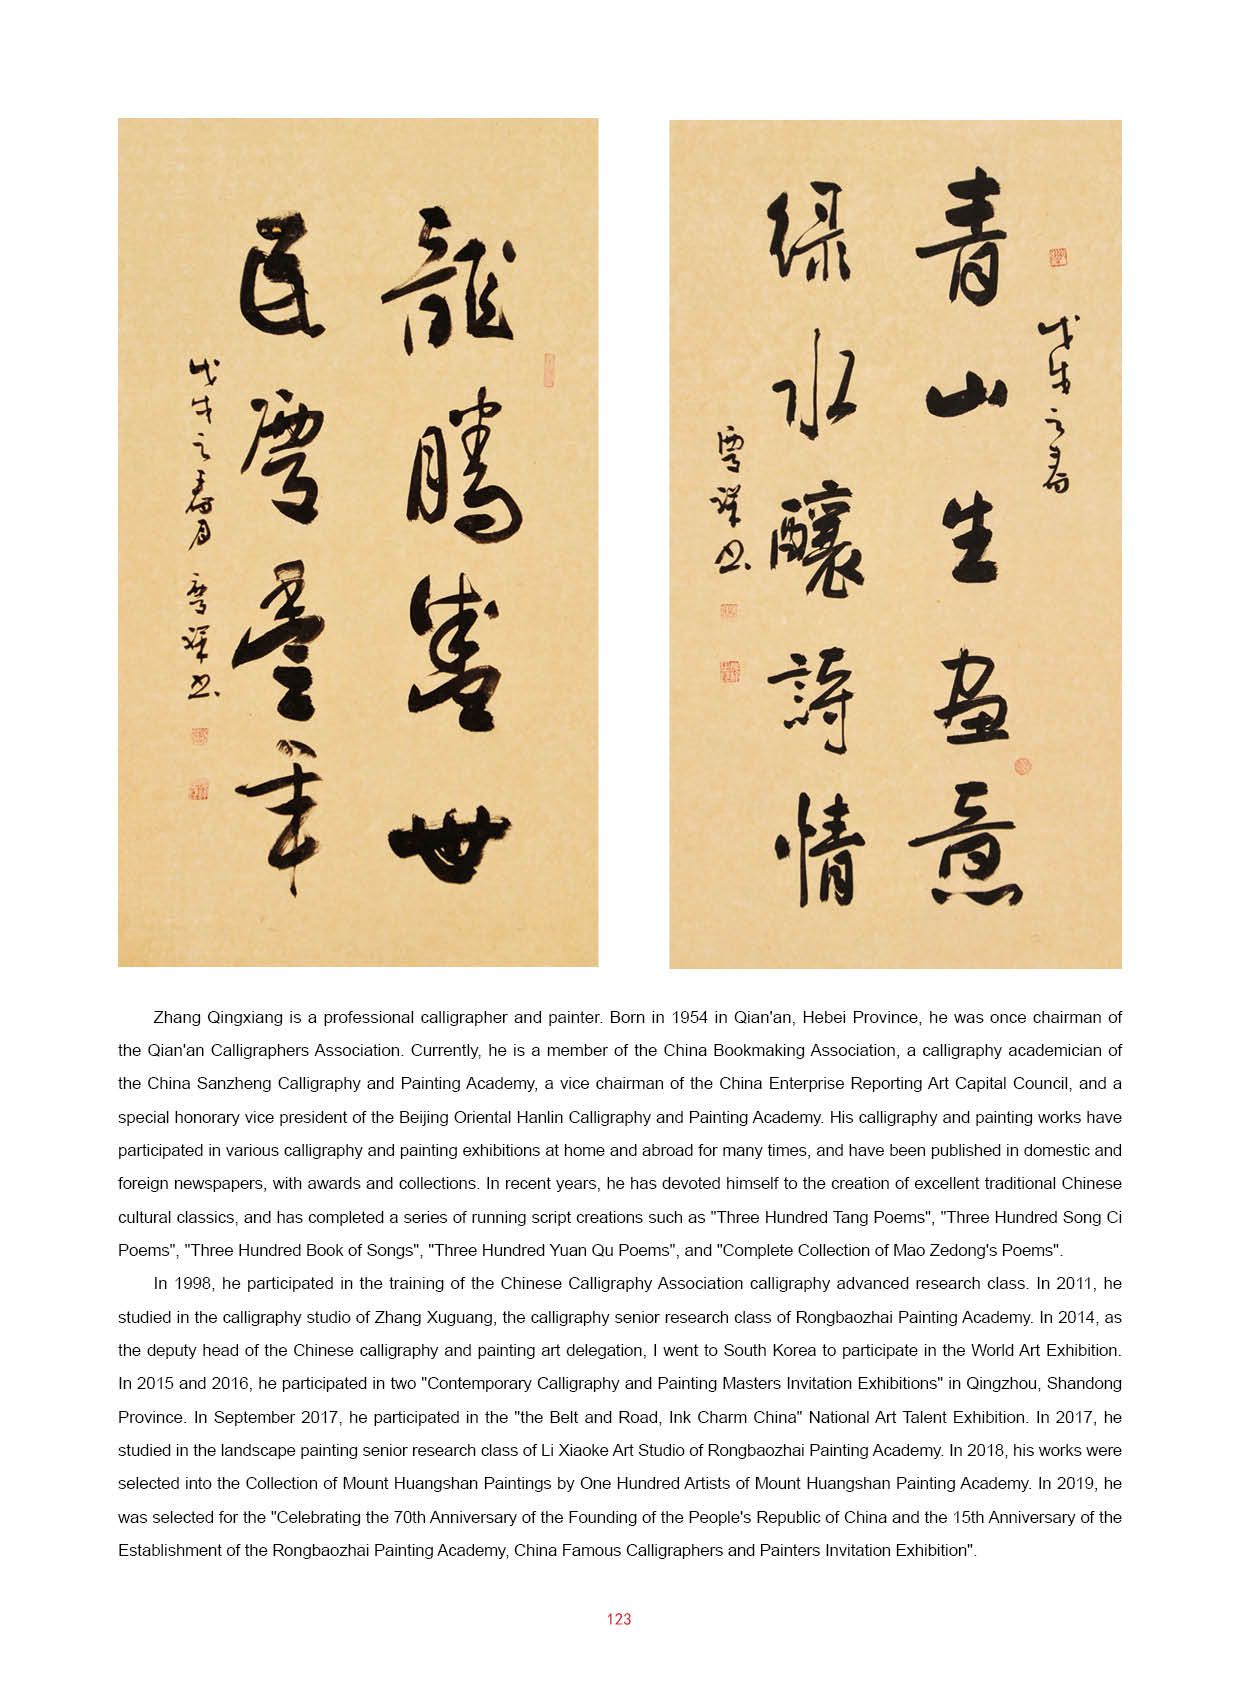 龍騰盛世
民慶豐年
戊戌之春月慶祥书
戊戌之春
青山生画意
绿水釀詩情
慶祥书
Zhang Qingxiang is a professional calligrapher and painter. Born in 1954 in Qian'an, Hebei Province, he was once chairman of
the Qian'an Calligraphers Association. Currently, he is a member of the China Bookmaking Association, a calligraphy academician of
the China Sanzheng Calligraphy and Painting Academy, a vice chairman of the China Enterprise Reporting Art Capital Council, and a
special honorary vice president of the Beijing Oriental Hanlin Calligraphy and Painting Academy. His calligraphy and painting works have
participated in various calligraphy and painting exhibitions at home and abroad for many times, and have been published in domestic and
foreign newspapers, with awards and collections. In recent years, he has devoted himself to the creation of excellent traditional Chinese
cultural classics, and has completed a series of running script creations such as "Three Hundred Tang Poems", "Three Hundred Song Ci
Poems", "Three Hundred Book of Songs", "Three Hundred Yuan Qu Poems", and "Complete Collection of Mao Zedong's Poems".
In 1998, he participated in the training of the Chinese Calligraphy Association calligraphy advanced research class. In 2011, he
studied in the calligraphy studio of Zhang Xuguang, the calligraphy senior research class of Rongbaozhai Painting Academy. In 2014, as
the deputy head of the Chinese calligraphy and painting art delegation, I went to South Korea to participate in the World Art Exhibition.
In 2015 and 2016, he participated in two "Contemporary Calligraphy and Painting Masters Invitation Exhibitions" in Qingzhou, Shandong
Province. In September 2017, he participated in the "the Belt and Road, Ink Charm China" National Art Talent Exhibition. In 2017, he
studied in the landscape painting senior research class of Li Xiaoke Art Studio of Rongbaozhai Painting Academy. In 2018, his works were
selected into the Collection of Mount Huangshan Paintings by One Hundred Artists of Mount Huangshan Painting Academy. In 2019, he
was selected for the "Celebrating the 70th Anniversary of the Founding of the People's Republic of China and the 15th Anniversary of the
Establishment of the Rongbaozhai Painting Academy, China Famous Calligraphers and Painters Invitation Exhibition".
123